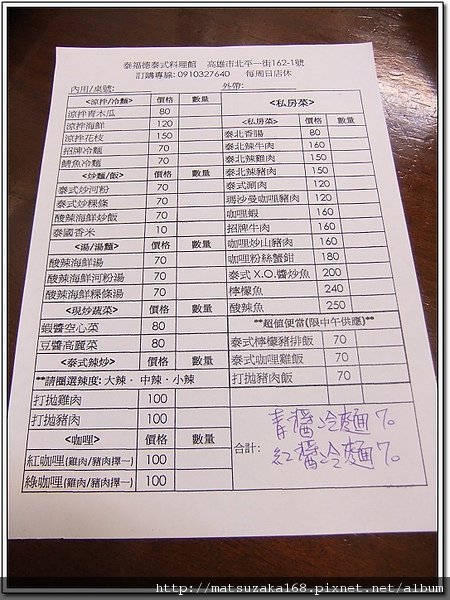 泰福德泰式料理館 高雄市北平一街162-1號
訂購專線: 0910327640 每周日店休
內用/桌號: 外帶:
<涼拌/冷麵> 價格 數量
涼拌青木瓜 80
涼拌海鮮 120
涼拌花枝 150
招牌冷麵 70
鯖魚冷麵 70
<炒麵/飯> 價格 數量
泰式炒河粉 70
泰式炒粿條 70
酸辣海鮮炒飯 70
泰國香米 10
<湯/湯麵> 價格 數量
酸辣海鮮湯 70
酸辣海鮮河粉湯 70
酸辣海鮮粿條湯 70
<現炒蔬菜> 價格 數量
蝦醬空心菜 80
豆醬高麗菜 80
<泰式辣炒> 價格 數量
**請圈選辣度: 大辣 · 中辣 · 小辣
打拋雞肉 100
打拋豬肉 100
<咖哩> 價格 數量
紅咖哩(雞肉/豬肉擇一) 100
綠咖哩(雞肉/豬肉擇一) 100
<私房菜> 價格 數量
泰北香腸 80
泰北辣牛肉 160
泰北辣雞肉 150
泰北辣豬肉 150
泰式涮肉 120
瑪沙曼咖哩豬肉 120
咖哩蝦 160
招牌牛肉 160
咖哩炒山豬肉 160
咖哩粉絲蟹鉗 180
泰式 X.O.醬炒魚 200
檸檬魚 240
酸辣魚 250
**超值便當(限中午供應)**
泰式檸檬豬排飯 70
泰式咖哩雞飯 70
打拋豬肉飯 70
青醬冷麵 70
紅醬冷麵 70
合計:
http://matsuzaka168.pixnet.net/album